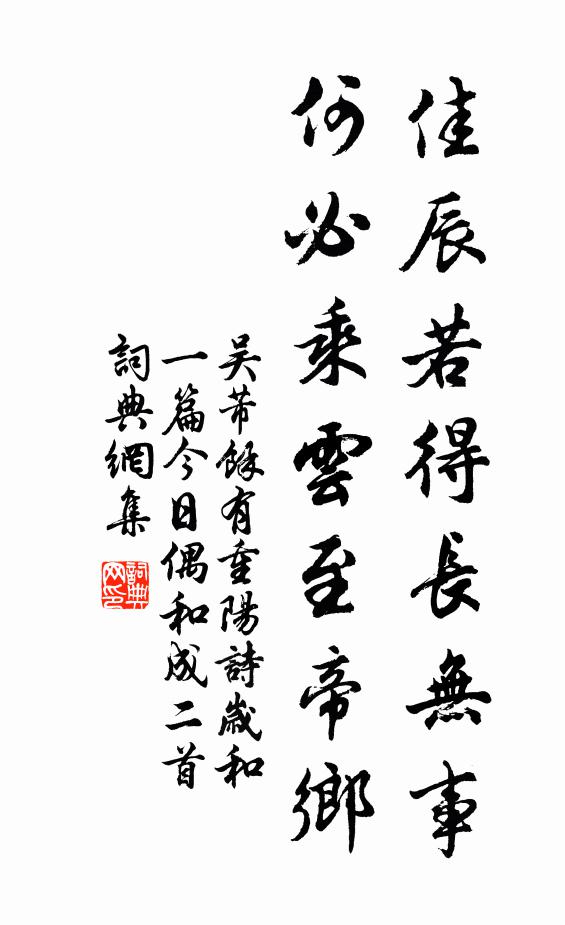 佳辰若得長無事
何必乘雲至帝鄉
吴芾餘有重陽詩歲和
一篇今日偶和成二首
詞典網集
詞典
网印